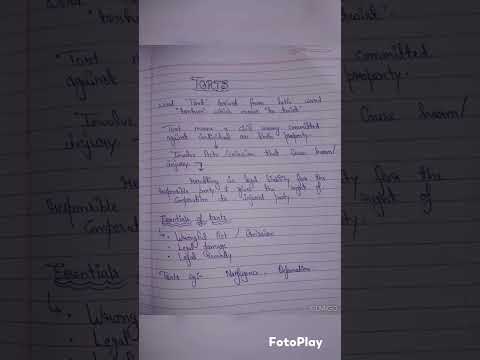 TORTS
word Tort derived from latin word
"tortum" which means "to twist"
Tort means a civil wrong committed
against individual or their property.
Involve Acts/omission that cause harm/
injury
Resulting in legal liability for the
responsible party & gives the right of
compensation to injured party.
Essentials of torts
Wrongful Act / Omission
Legal damage
Legal Remedy
Torts eg:- Negligence, Defamation
FotoPlay